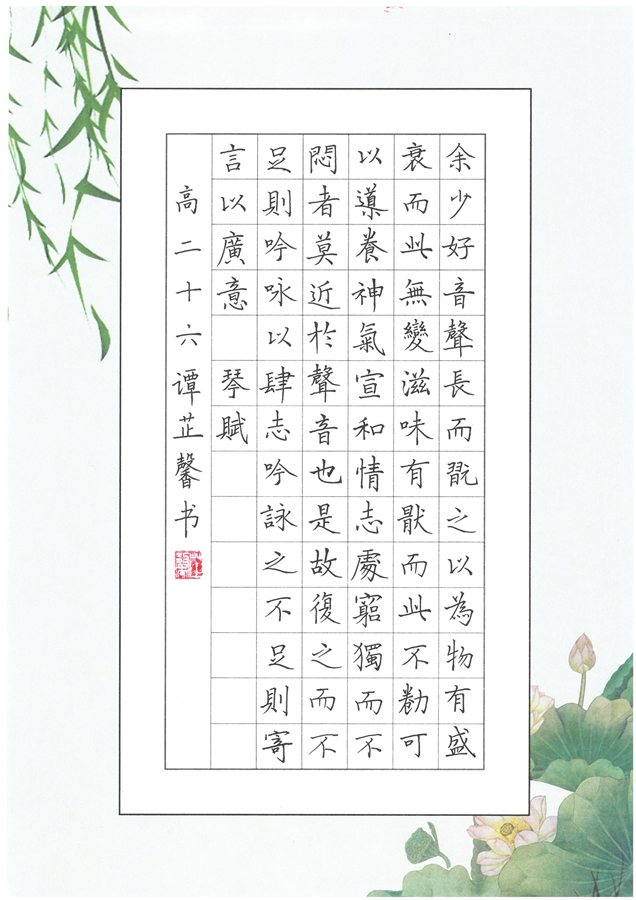 余少好音聲長而翫之以為物有盛
衰而此無變滋味有猒而此不勌可
以導養神氣宣和情志處窮獨而不
悶者莫近於聲音也是故復之而不
足則吟咏以肆志吟詠之不足則寄
言以廣意 琴賦
高二十六谭芷馨书